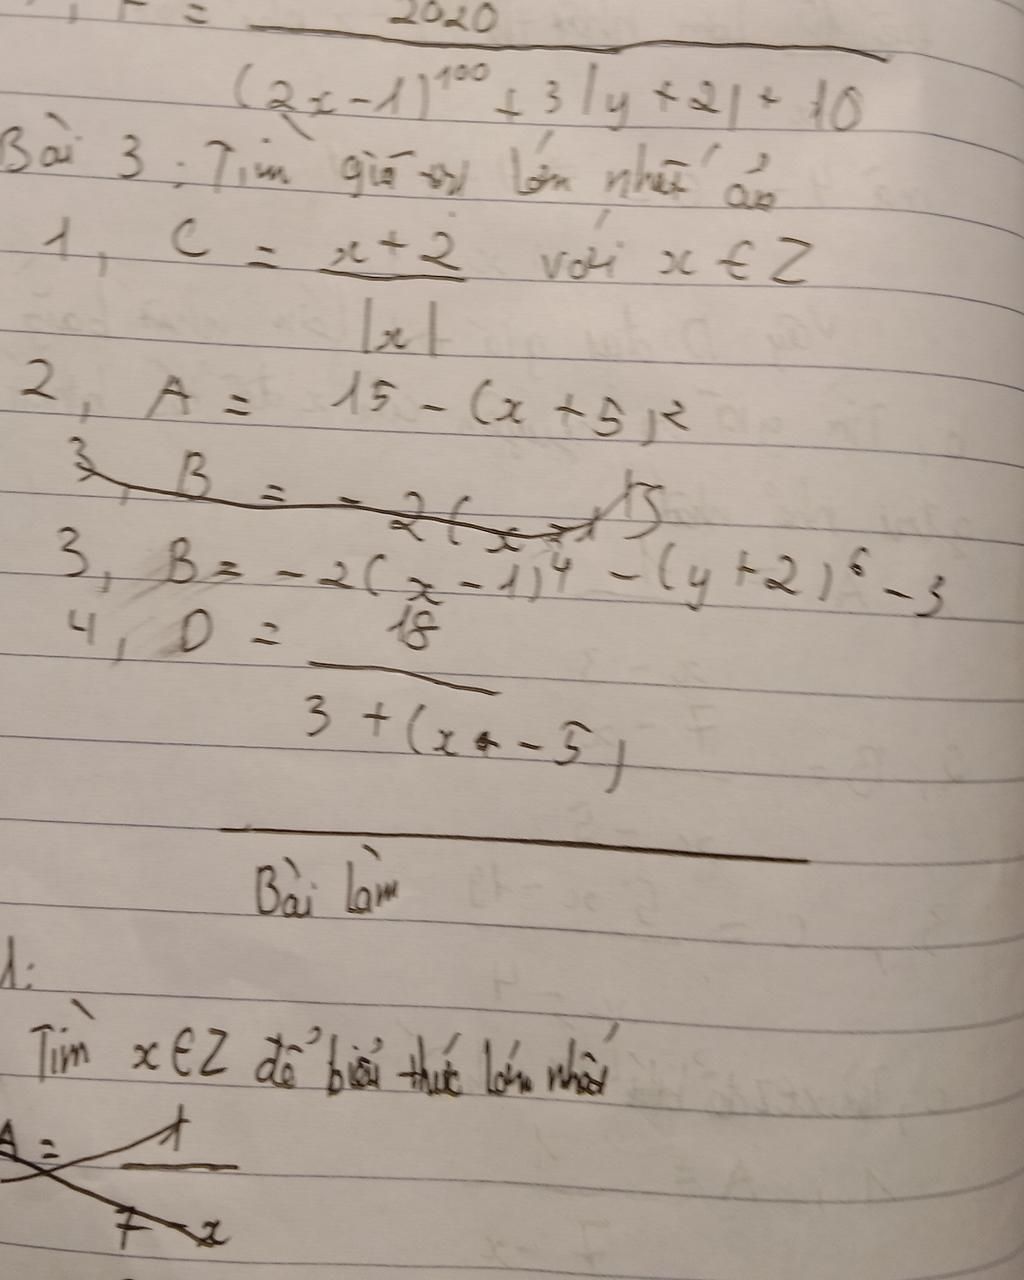 = 2020
(2x-1)^100 + 3|y+2| + 10
Bài 3: Tìm giá trị lớn nhất của
1, C = x+2 với x ∈ Z
|x|
2, A = 15 - (x+5)²
3, B = -2(x
3, B = -2(x-1)^4 - (y+2)^6 - 3
4, D = 18
3 + (x - 5)
Bài làm
1:
Tìm x ∈ Z để biểu thức lớn nhất
A = 1
7-x